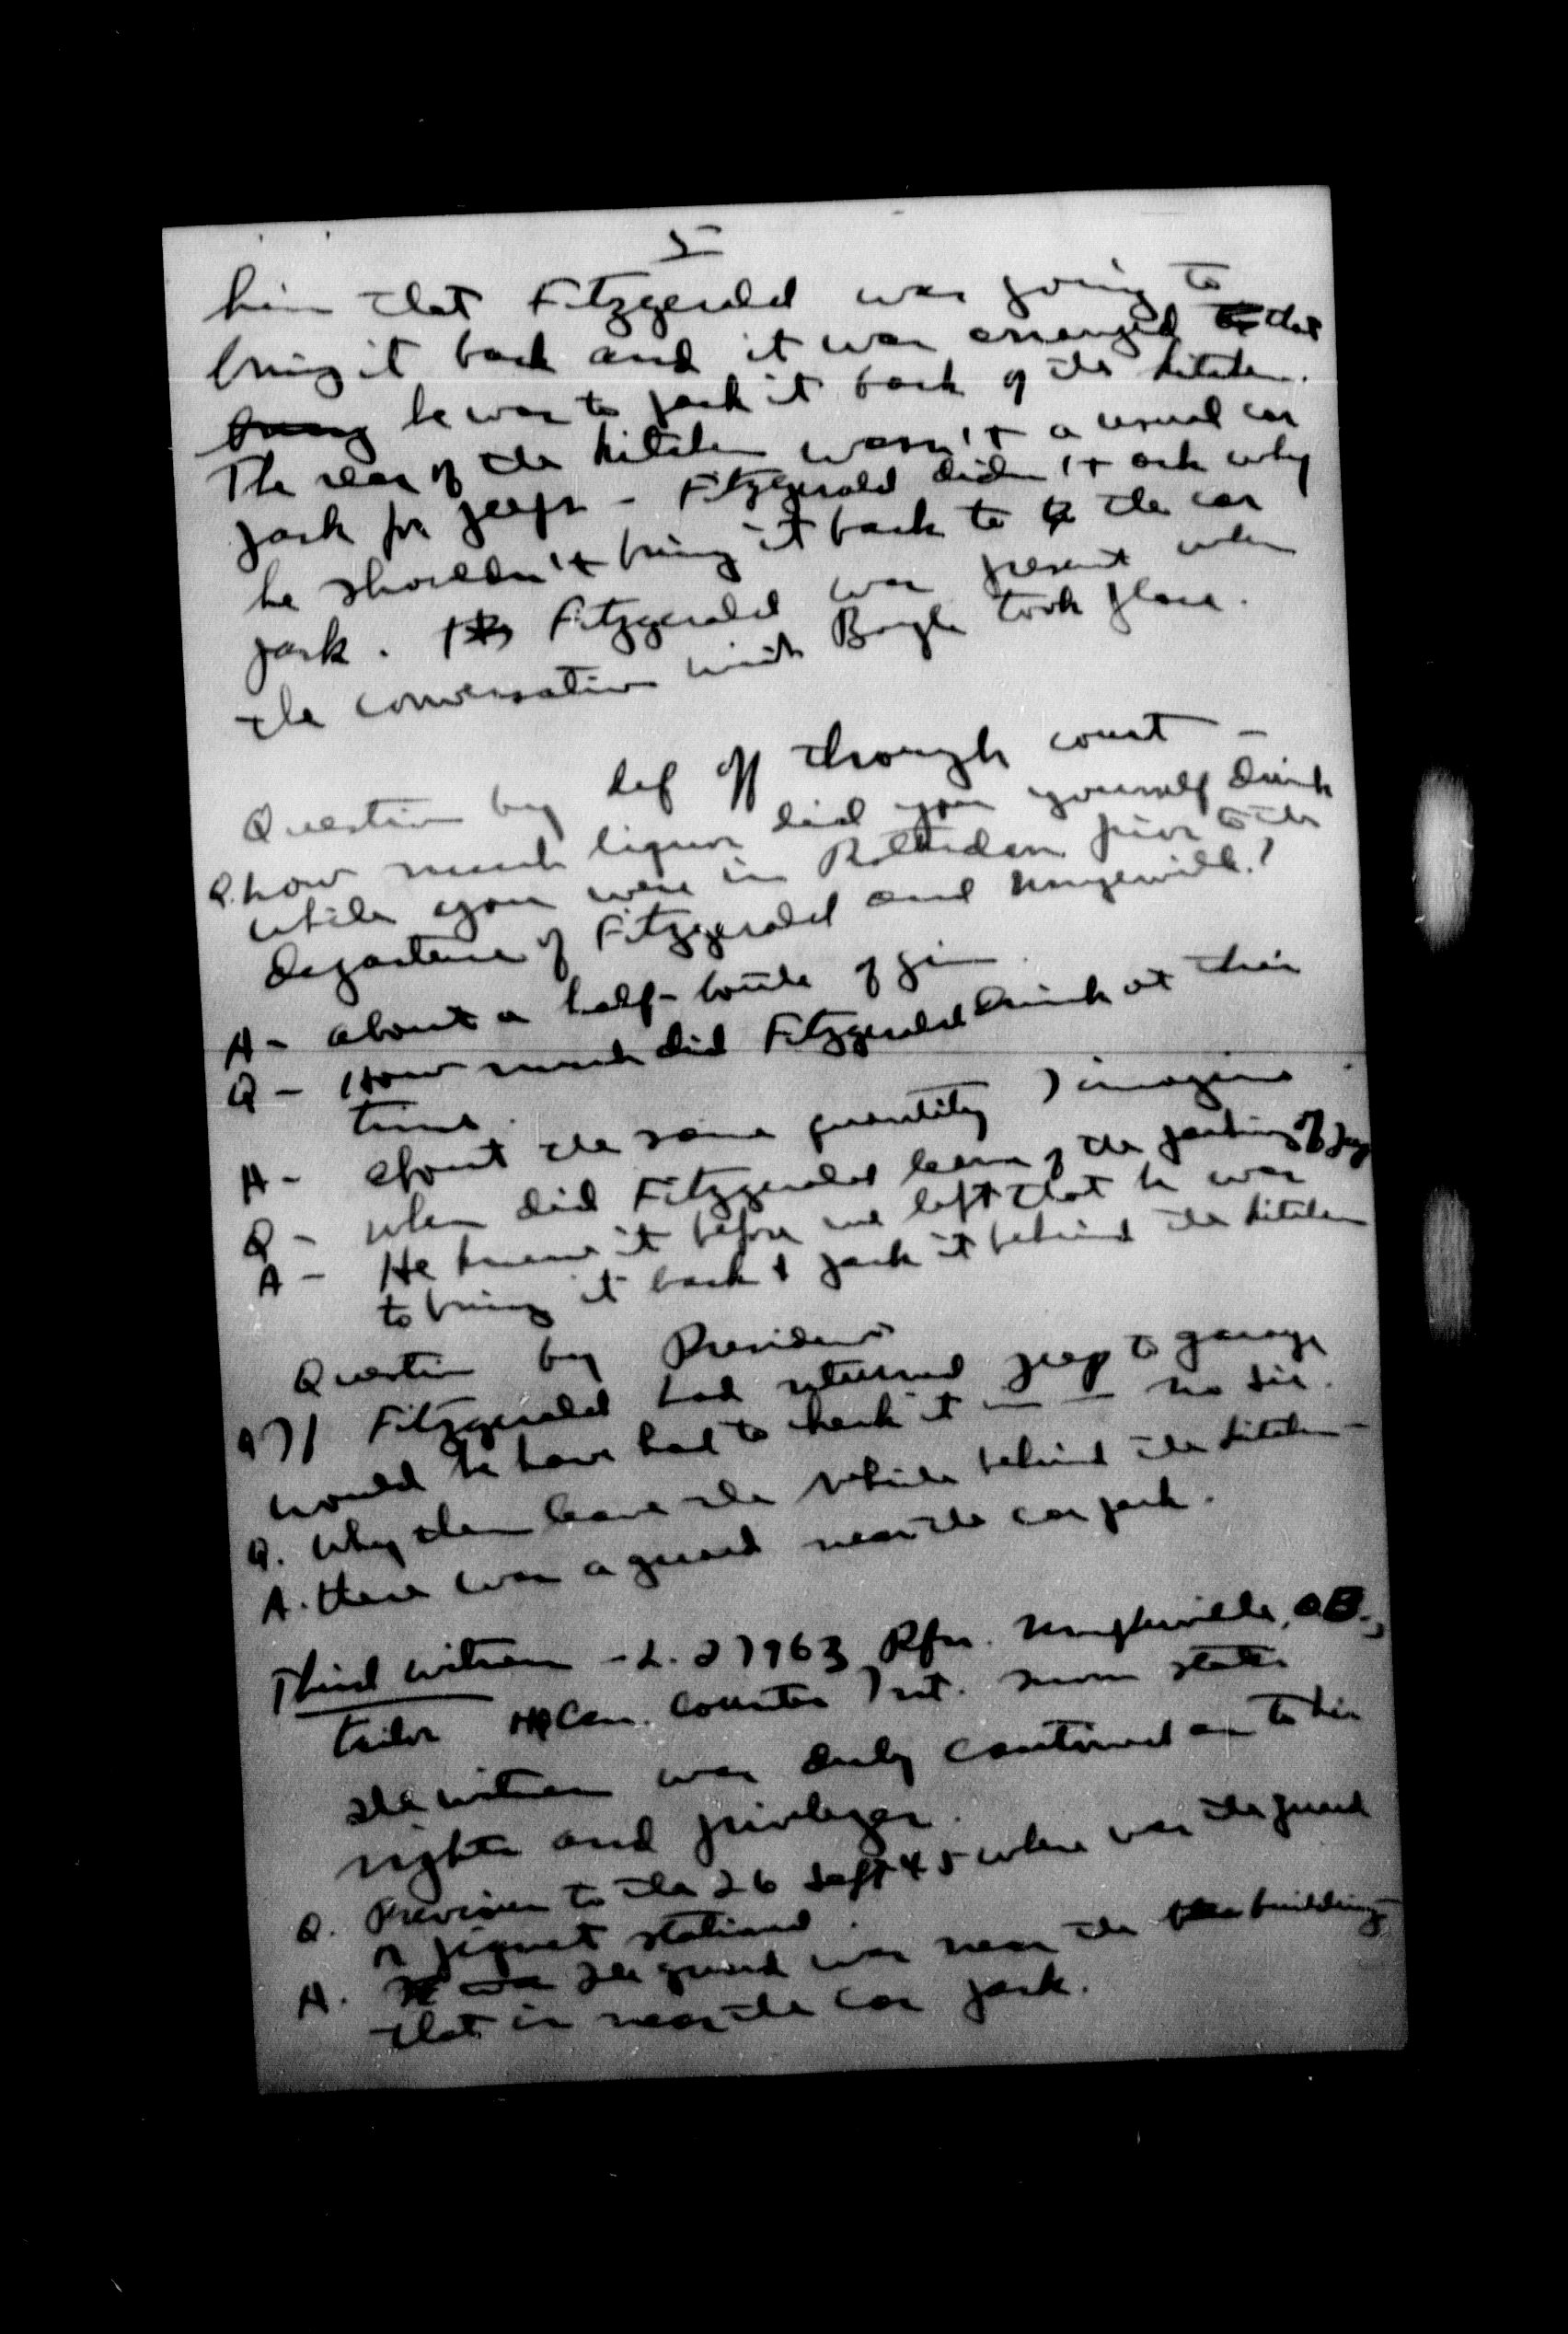 5
him that Fitzgerald was going to
bring it back and it was arranged to that
bring he was to park it back of the kitchen.
The rear of the kitchen wasn't a usual car
park for jeeps - Fitzgerald didn't ask why
he shouldn't bring it back to the car
park. Fitzgerald was present when
the conversation with Boyle took place.
Question by def off through court -
Q. how much liquor did you yourself drink
while you were in Rotterdam prior to the
departure of Fitzgerald and
A - about a half-bottle of gin.
Q - How much did Fitzgerald drink at this
time.
A - about the same quantity I imagine.
Q - when did Fitzgerald learn of the parking of jeep
A - He knew it before we left that he was
to bring it back & park it behind the kitchen
Question by President
Q If Fitzgerald had returned jeep to garage
would he have had to check it — — no sir.
Q. Why then leave the vehicle behind the kitchen -
A. there was a guard near the car park.
Third witness - L. 27963 Rfn.
tailor HQ Can. Counter Int. sworn states
The witness was duly cautioned as to his
rights and privileges.
Q. Previous to the 26 Sept 45 where was the guard
or piquet stationed.
A. The guard was near the building
that is near the car park.